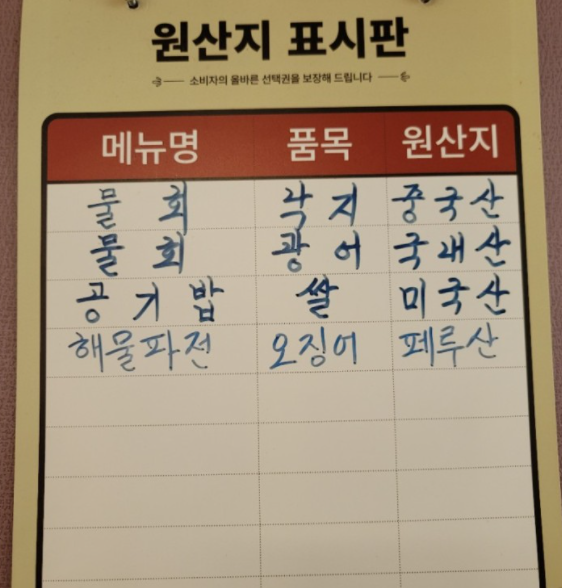 원산지 표시판
소비자의 올바른 선택권을 보장해 드립니다
메뉴명 품목 원산지
물회 낙지 중국산
물회 광어 국내산
공기밥 쌀 미국산
해물파전 오징어 페루산